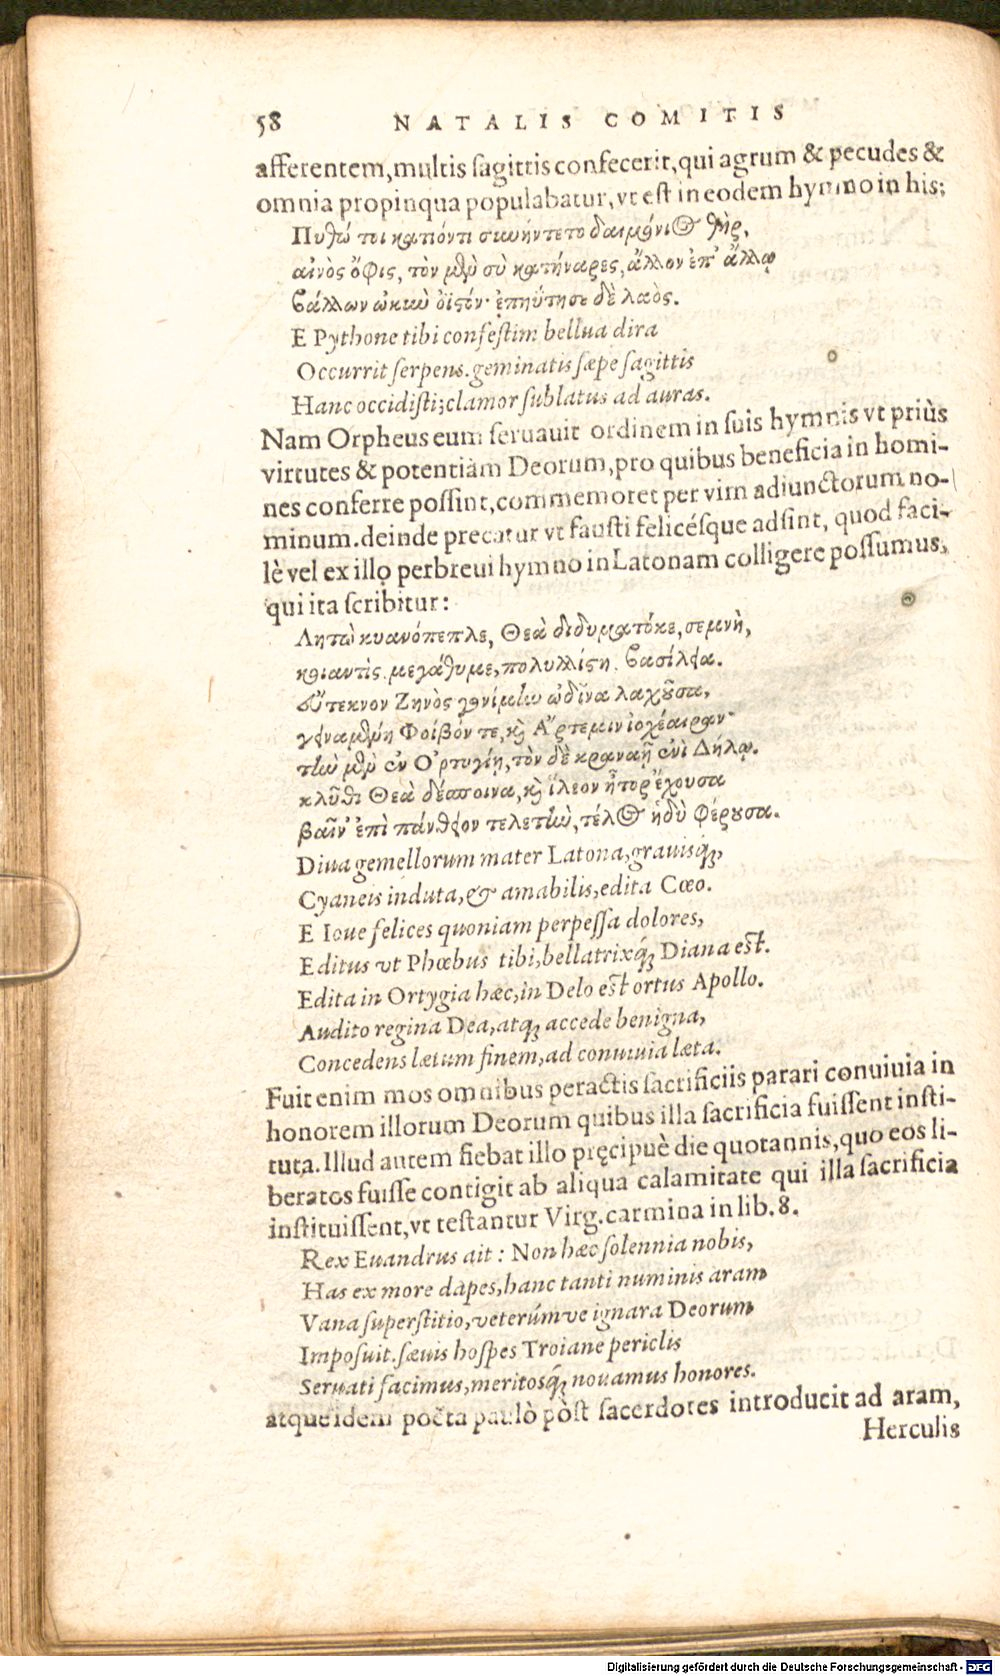 58 NATALIS COMITIS
afferentem, multis sagittis confecerit, qui agrum & pecudes &
omnia propinqua populabatur, vt est in eodem hymno in his;
Πυθώ τοι κατιόντι συνήντετο δαιμόνιος θὴρ,
αἰνὸς ὄφις, τὸν μὲν σὺ κατήναρες, ἄλλον ἐπ' ἄλλῳ
βάλλων ὠκὺν ὀϊστόν· ἐπηΰτησε δὲ λαὸς.
E Pythone tibi confestim bellua dira
Occurrit serpens. geminatis sæpe sagittis
Hanc occidisti; clamor sublatus ad auras.
Nam Orpheus eum seruauit ordinem in suis hymnis vt priùs
virtutes & potentiam Deorum, pro quibus beneficia in homi-
nes conferre possint, commemoret per vim adiunctorum no-
minum. deinde precatur vt fausti felicésque adsint, quod faci-
lè vel ex illo perbreui hymno in Latonam colligere possumus,
qui ita scribitur:
Λητὼ κυανόπεπλε, Θεὰ διδυματόκε, σεμνὴ,
κοιαντὶς μεγάθυμε, πολυλλίστη βασίλεια.
εὔτεκνον Ζηνὸς γονίμην ὠδῖνα λαχοῦσα,
γειναμένη Φοίβόν τε, καὶ Ἄρτεμιν ἰοχέαιραν·
τὴν μὲν ἐν Ὀρτυγίῃ, τὸν δὲ κραναῇ ἐνὶ Δήλῳ.
κλῦθι Θεὰ δέσποινα, καὶ ἵλεον ἦτορ ἔχουσα
βαῖν' ἐπὶ πάνθειον τελετὴν, τέλος ἡδὺ φέρουσα.
Diua gemellorum mater Latona, grauisq́;
Cyaneis induta, & amabilis, edita Cœo.
E Ioue felices quoniam perpessa dolores,
Editus vt Phœbus tibi, bellatrixq́; Diana est.
Edita in Ortygia hæc, in Delo est ortus Apollo.
Audito regina Dea, atq; accede benigna,
Concedens lætum finem, ad conuiuia læta.
Fuit enim mos omnibus peractis sacrificiis parari conuiuia in
honorem illorum Deorum quibus illa sacrificia fuissent insti-
tuta. Illud autem fiebat illo pręcipuè die quotannis, quo eos li-
beratos fuisse contigit ab aliqua calamitate qui illa sacrificia
instituissent, vt testantur Virg. carmina in lib. 8.
Rex Euandrus ait: Non hæc solennia nobis,
Has ex more dapes, hanc tanti numinis aram
Vana superstitio, veterúmve ignara Deorum
Imposuit. sæuis hospes Troiane periclis
Seruati facimus, meritosq́; nouamus honores.
atque idem poëta paulò pòst sacerdotes introducit ad aram,
Herculis
Digitalisierung gefördert durch die Deutsche Forschungsgemeinschaft - DFG